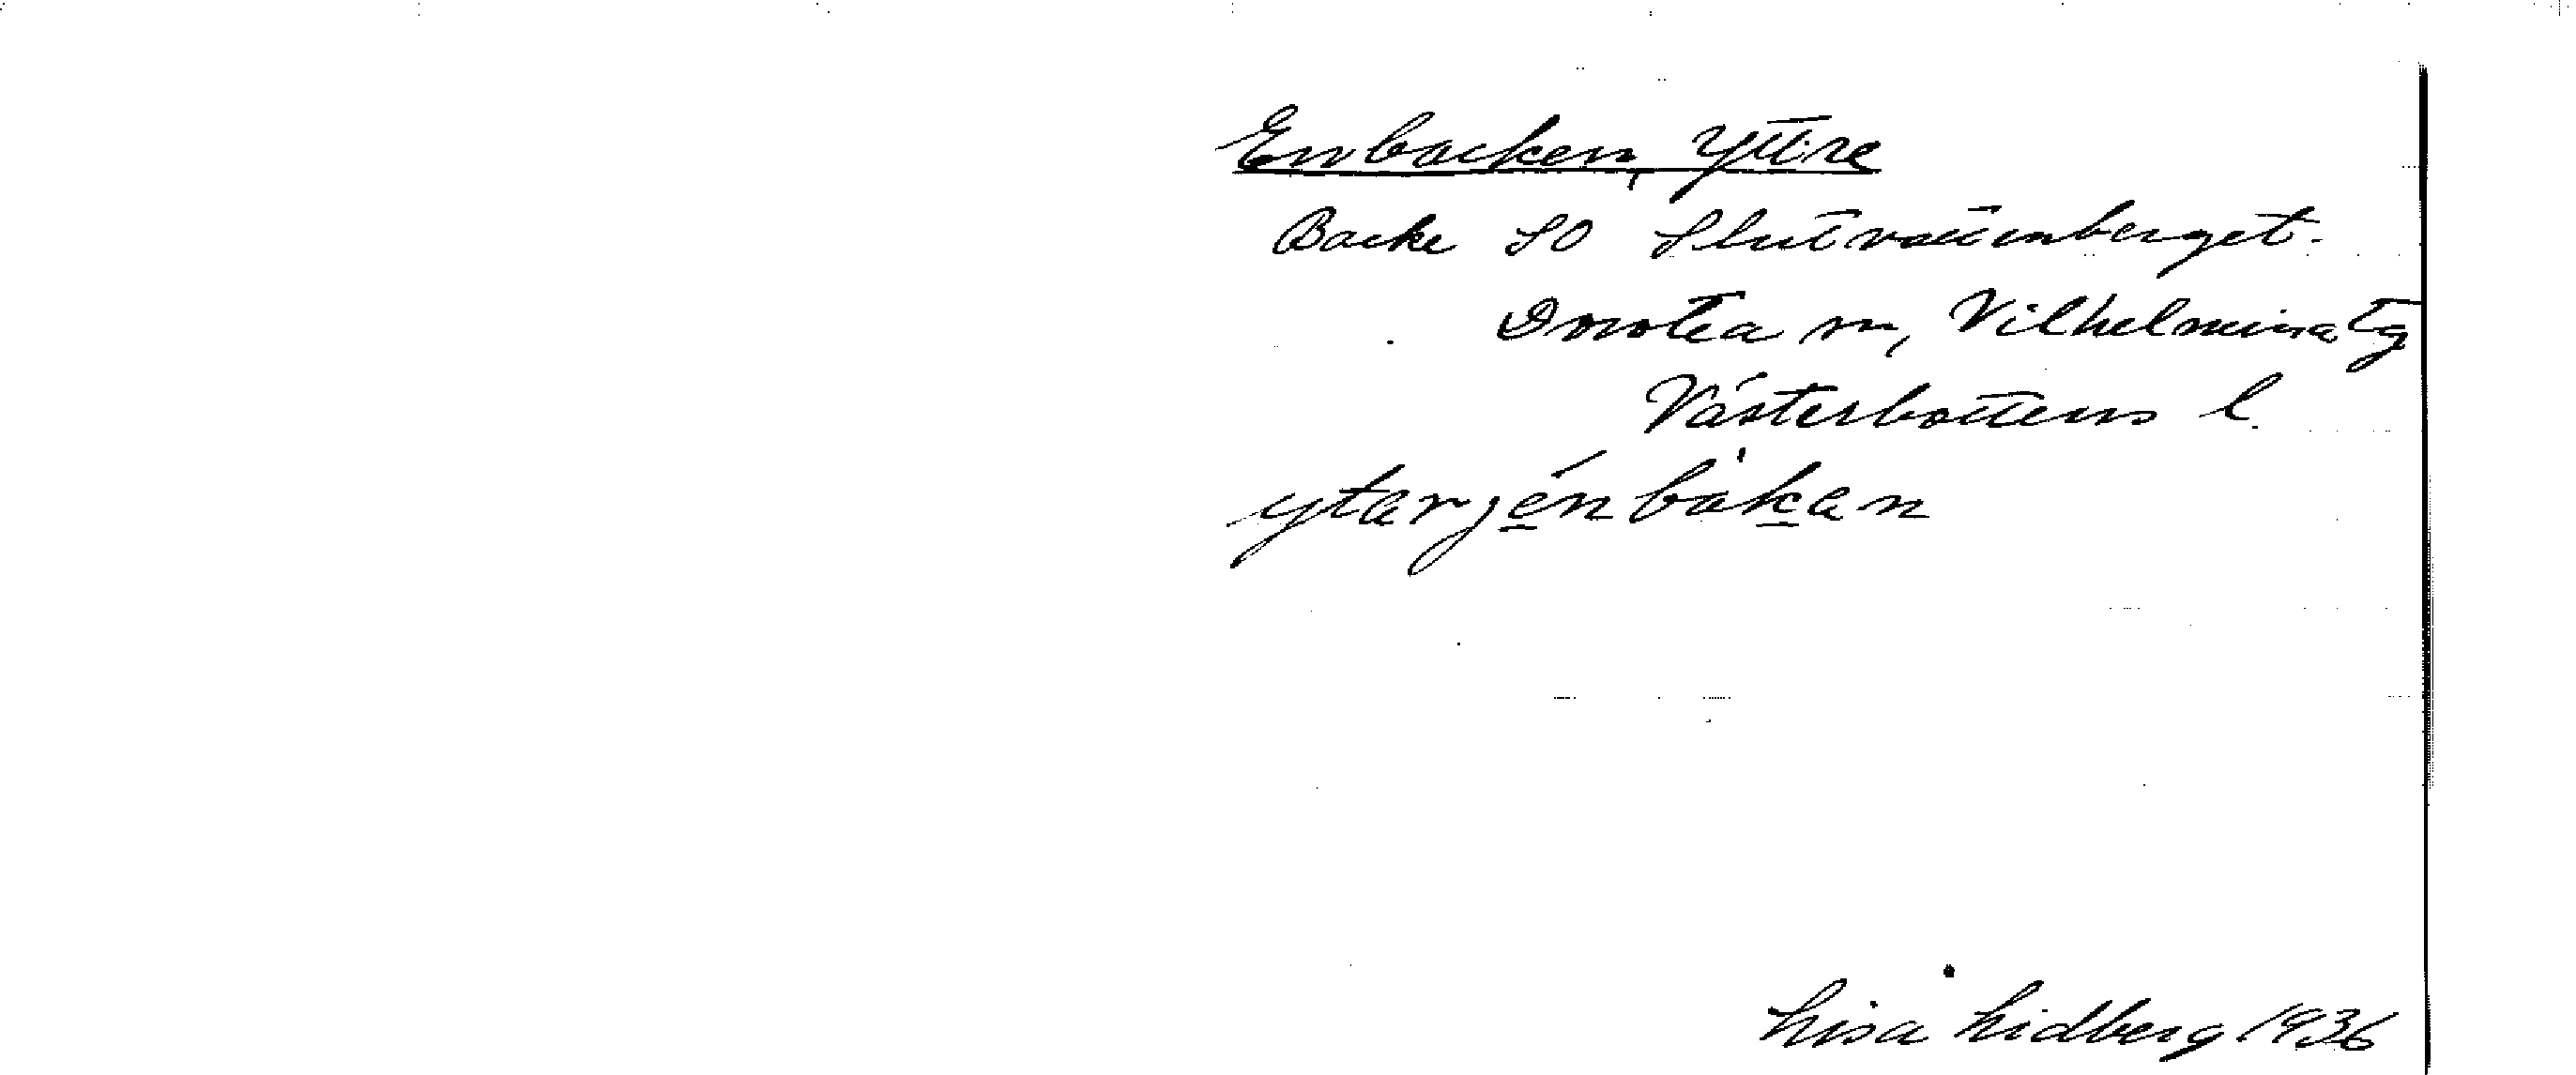 Enbacken, Yttre
Backe SO Slutvattenberget.
Dorotea sn, Vilhelmina tg
Västerbottens l.
ytarjénbàkan
Lisa Lidberg 1936